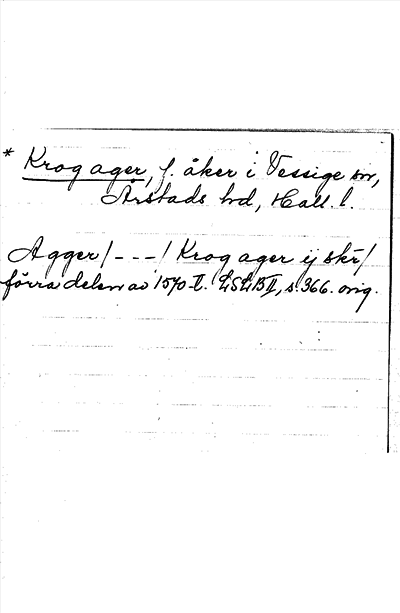 * Krog ager, f. åker i Vessige sn,
Årstads hd, Hall. l.
Agger / - - - / Krog ager ij skr /
förra delen av 1570-t. LSLB II, s. 366. orig.